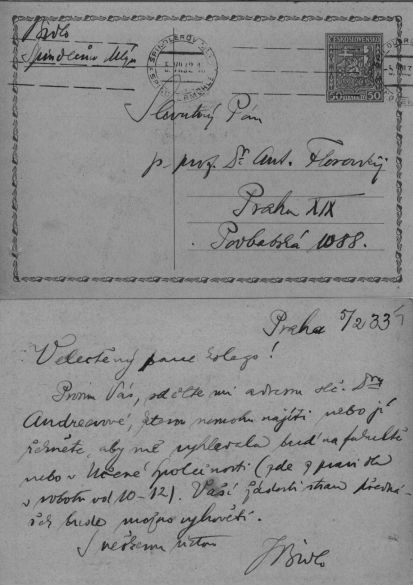 Bidlo
Špindlerův Mlýn
ŠPINDLERŮV
ČESKOSLOVENSKO
50 50
Slovutný Pán
p. prof. Dr. Ant. Florovskij
Praha XIX
Podbabská 1088.
Praha 5/2 33
Velectěný pane kolego!
Prosím Vás, sdělte mi adresu slč. Dry
Andreevové, kterou nemohu najíti nebo jí
řekněte, aby mě vyhledala buď na fakultě
nebo v Učené společnosti (zde
v sobotu od 10-12). Vaší žádosti stran předná-
šek bude možno vyhověti.
S veškerou úctou
JBidlo